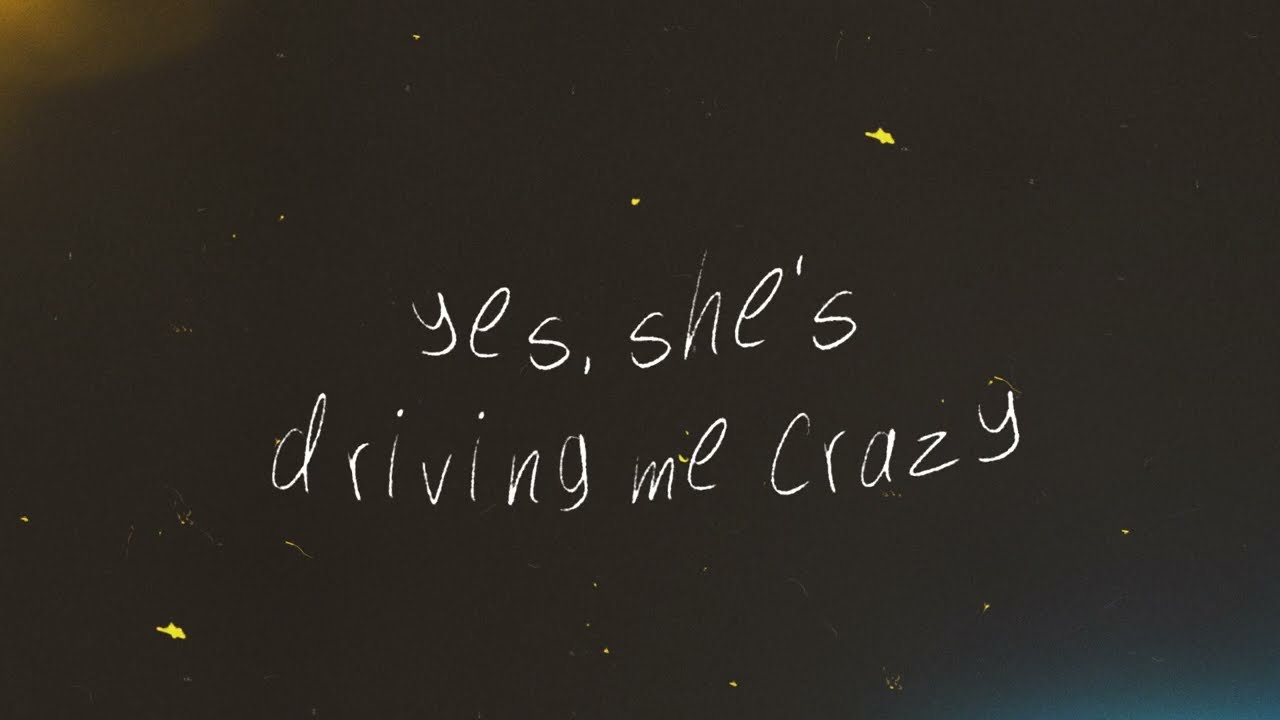 yes, she's
driving me crazy